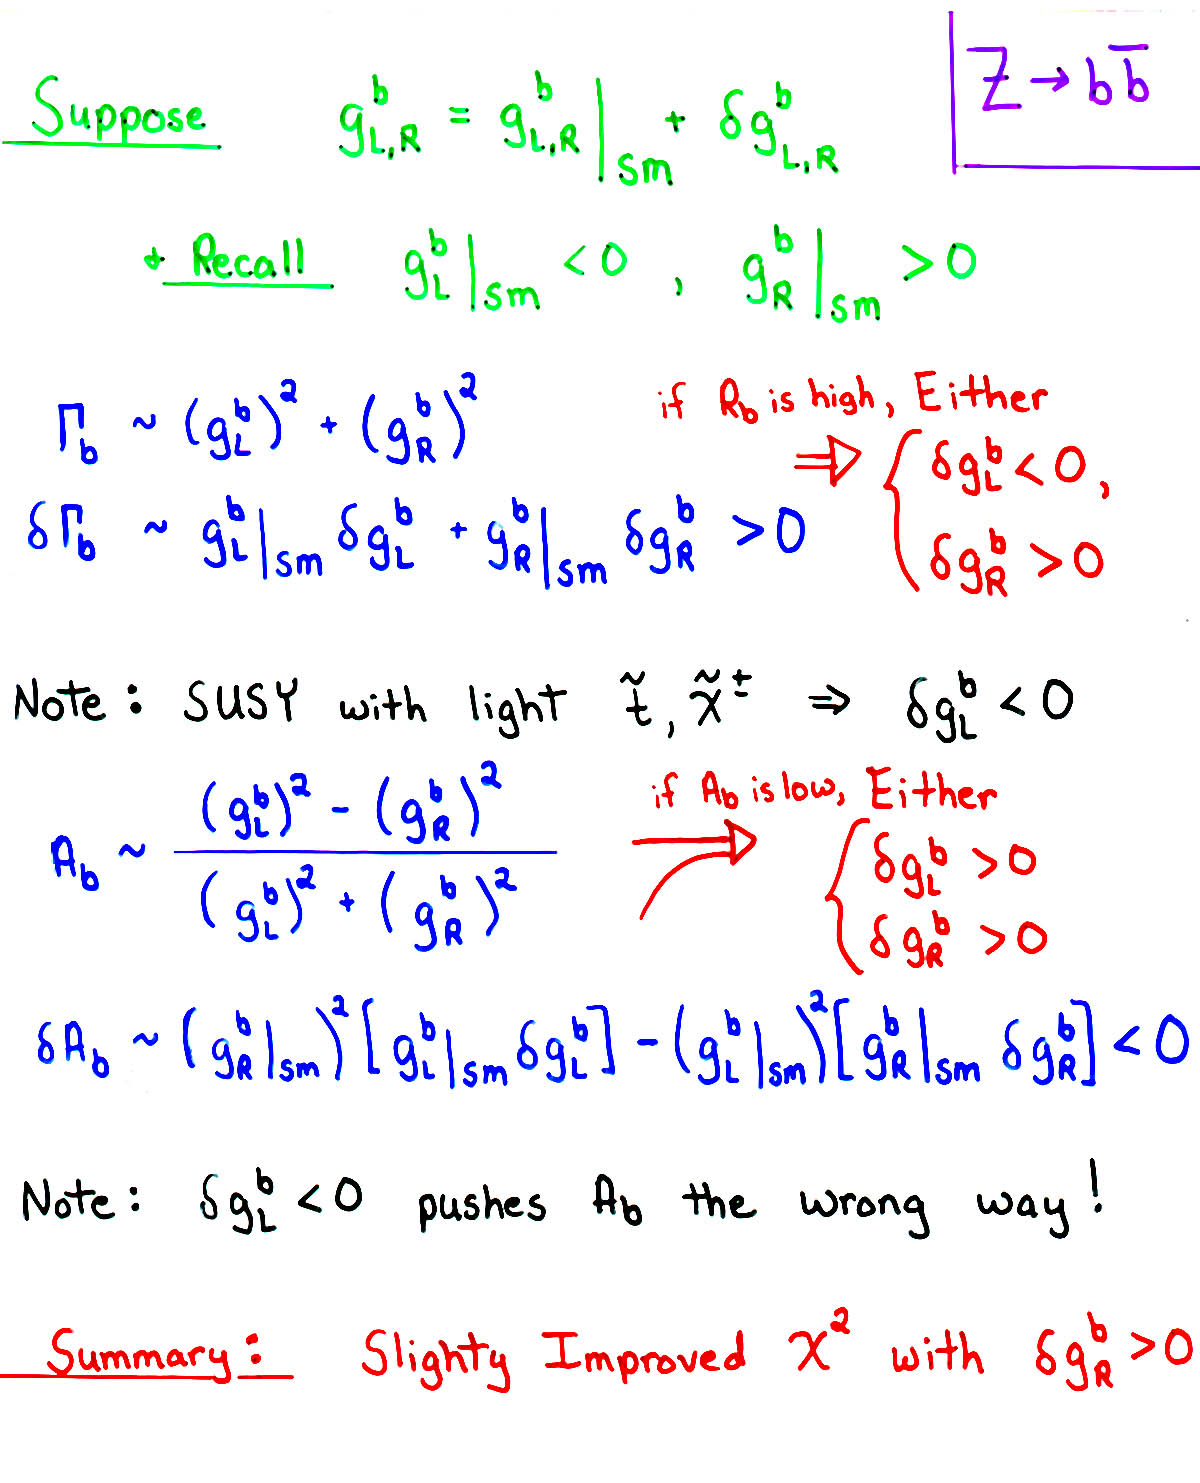 Z → b b̄
Suppose g^b_{L,R} = g^b_{L,R}|_{SM} + δg^b_{L,R}
+ Recall g^b_L|_{SM} < 0 , g^b_R|_{SM} > 0
Γ_b ~ (g^b_L)^2 + (g^b_R)^2
if R_b is high, Either
⇒ { δg^b_L < 0,
δg^b_R > 0
δΓ_b ~ g^b_L|_{SM} δg^b_L + g^b_R|_{SM} δg^b_R > 0
Note: SUSY with light t̃, χ̃^± ⇒ δg^b_L < 0
A_b ~ ((g^b_L)^2 - (g^b_R)^2) / ((g^b_L)^2 + (g^b_R)^2)
if A_b is low, Either
⇒ { δg^b_L > 0
δg^b_R > 0
δA_b ~ (g^b_R|_{SM})^2 [g^b_L|_{SM} δg^b_L] - (g^b_L|_{SM})^2 [g^b_R|_{SM} δg^b_R] < 0
Note: δg^b_L < 0 pushes A_b the wrong way!
Summary: Slighty Improved χ^2 with δg^b_R > 0